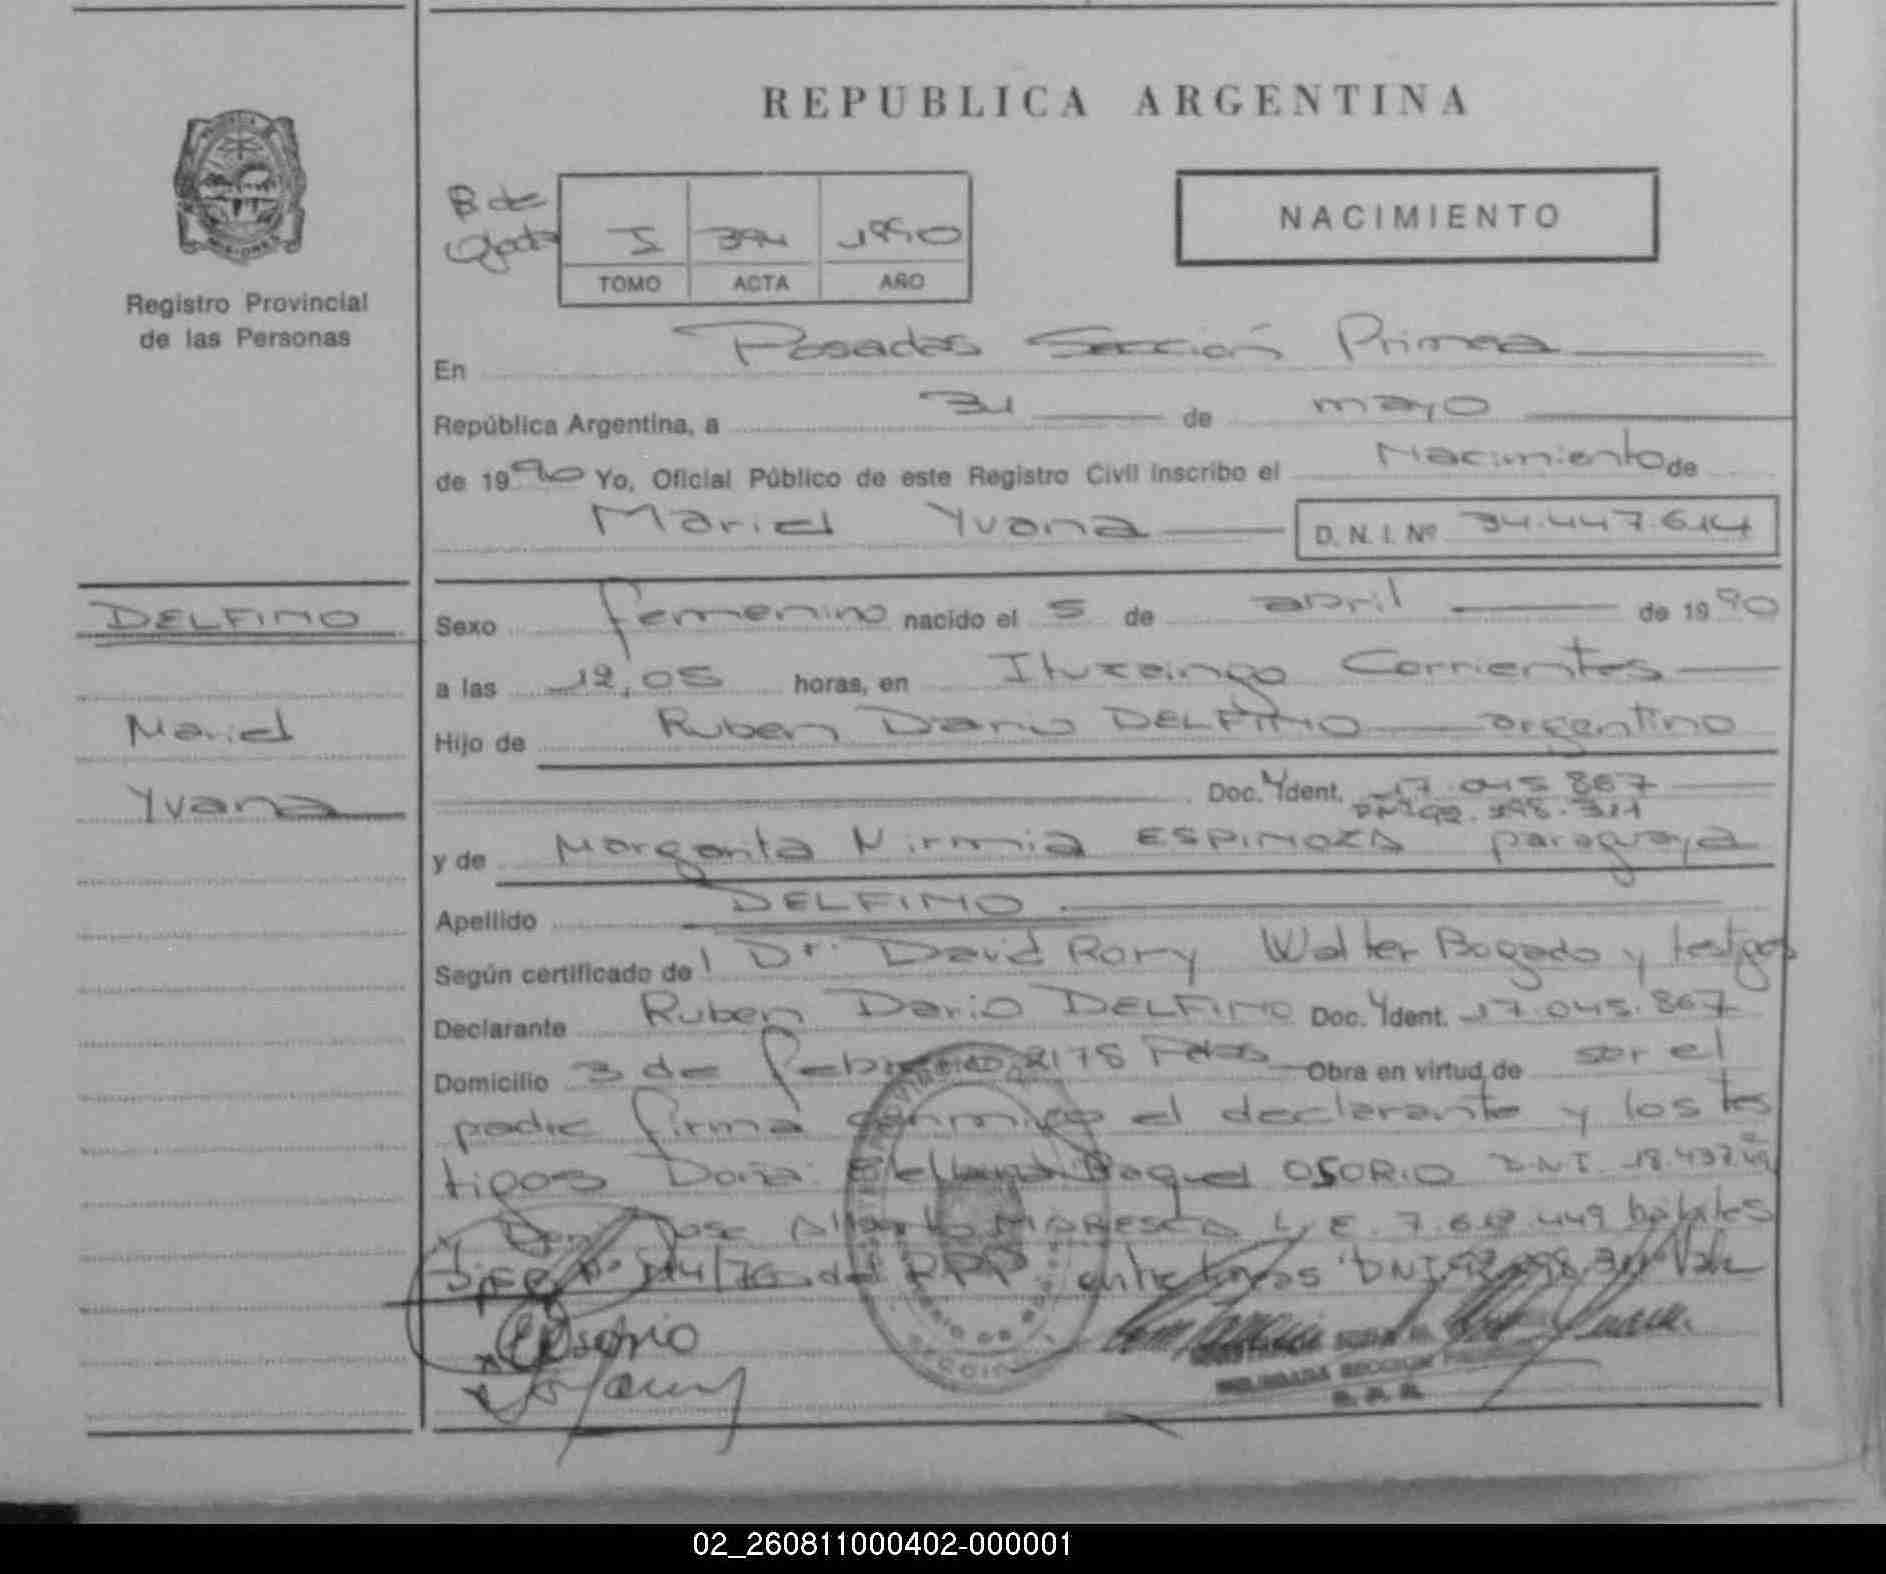 REPUBLICA ARGENTINA
Registro Provincial
de las Personas
B de
I 394 1990
TOMO ACTA AÑO
NACIMIENTO
En Posadas Sección Primera
República Argentina, a 31 de mayo
de 1990 Yo, Oficial Público de este Registro Civil inscribo el Nacimiento de
Mariel Yvana D. N. I. Nº 34.447.614
DELFINO
Mariel
Yvana
Sexo femenino nacido el 5 de abril de 1990
a las 12,05 horas, en Ituzaingo Corrientes
Hijo de Ruben Dario DELFINO argentino
Doc. Ydent. 17.045.867
DNI 92.398.311
y de Margarita Nirmia ESPINOZA paraguaya
Apellido DELFINO
Según certificado del Dr. David Rory Walter Bogado y testigos
Declarante Ruben Dario DELFINO Doc. Ydent. 17.045.867
Domicilio 3 de febrero 2178 Pdas Obra en virtud de ser el
padre firma conmigo el declarante y los tes
tigos Doña: Raquel OSORIO DNI. 18.437.
y Don Jose Alberto MARESCA L.E. 7.618.449 hábiles
Disp. Nº 214/76 del RPP entre lineas "DNI 92.398.311" Vale
EOsorio
SECCION
02_260811000402-000001